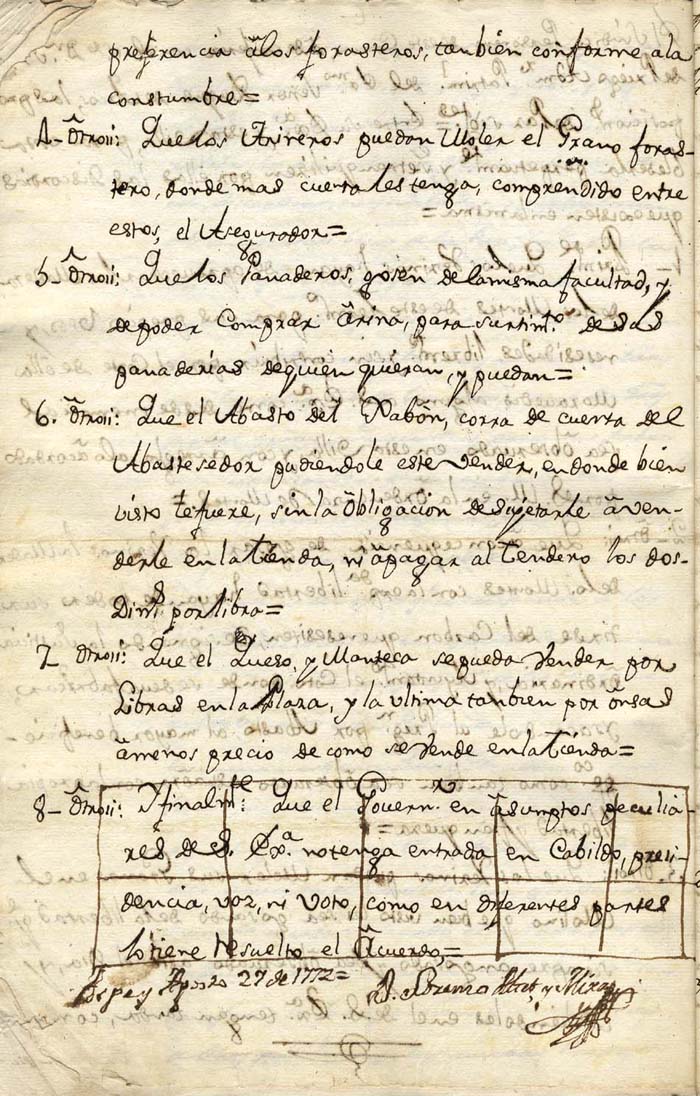 preferencia â los forasteros, tambien conforme a la
constumbre=
4- Ôtroii: Que los Arrieros puedan Moler el Grano foras-
tero, donde mas cuenta les tenga, comprendido entre
estos, el Asegurador=
5- Ôtroii: Que los Panaderos, gosen de la misma facultad, y
de poder Comprar Ârina, para surtimto. de sus
panaderías de quien quieran, y puedan=
6. Ôtroii: Que el Abasto del Xabôn, corra de cuenta del
Abastesedor pudiendole este vender, en donde bien
visto le fuere, sin la Ôbligacion de sujetarle â ven-
derle en la tienda, ni â pagar al tendero los dos
Dins. por libra=
7 Ôtroii: Que el Queso, y Manteca se pueda vender por
Libras en la Plaza, y la ultima tambien por ônsas
â menos precio de como se vende en la tienda=
8- Ôtroii: Y finalmte. Que el Governr. en âsumptos peculia-
res, de S. Exa. no tenga entrada en Cabildo, presi-
dencia, voz, ni voto, como en diferentes partes
lo tiene resuelto el Âcuerdo,=
Aspe y Agosto 27 de 1772=
y Mira